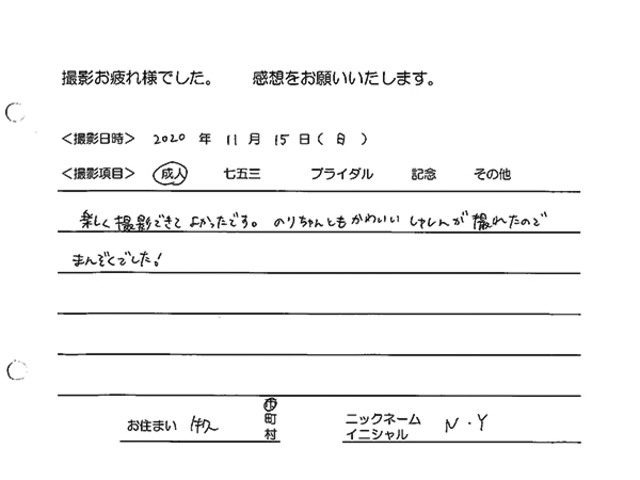 撮影お疲れ様でした。 感想をお願いいたします。
＜撮影日時＞ 2020 年 11 月 15 日（日）
＜撮影項目＞ 成人 七五三 ブライダル 記念 その他
楽しく撮影できてよかったです。のりちゃんともかわいいしゃしんが撮れたので
まんぞくでした!
お住まい 市町村 ニックネーム イニシャル N・Y